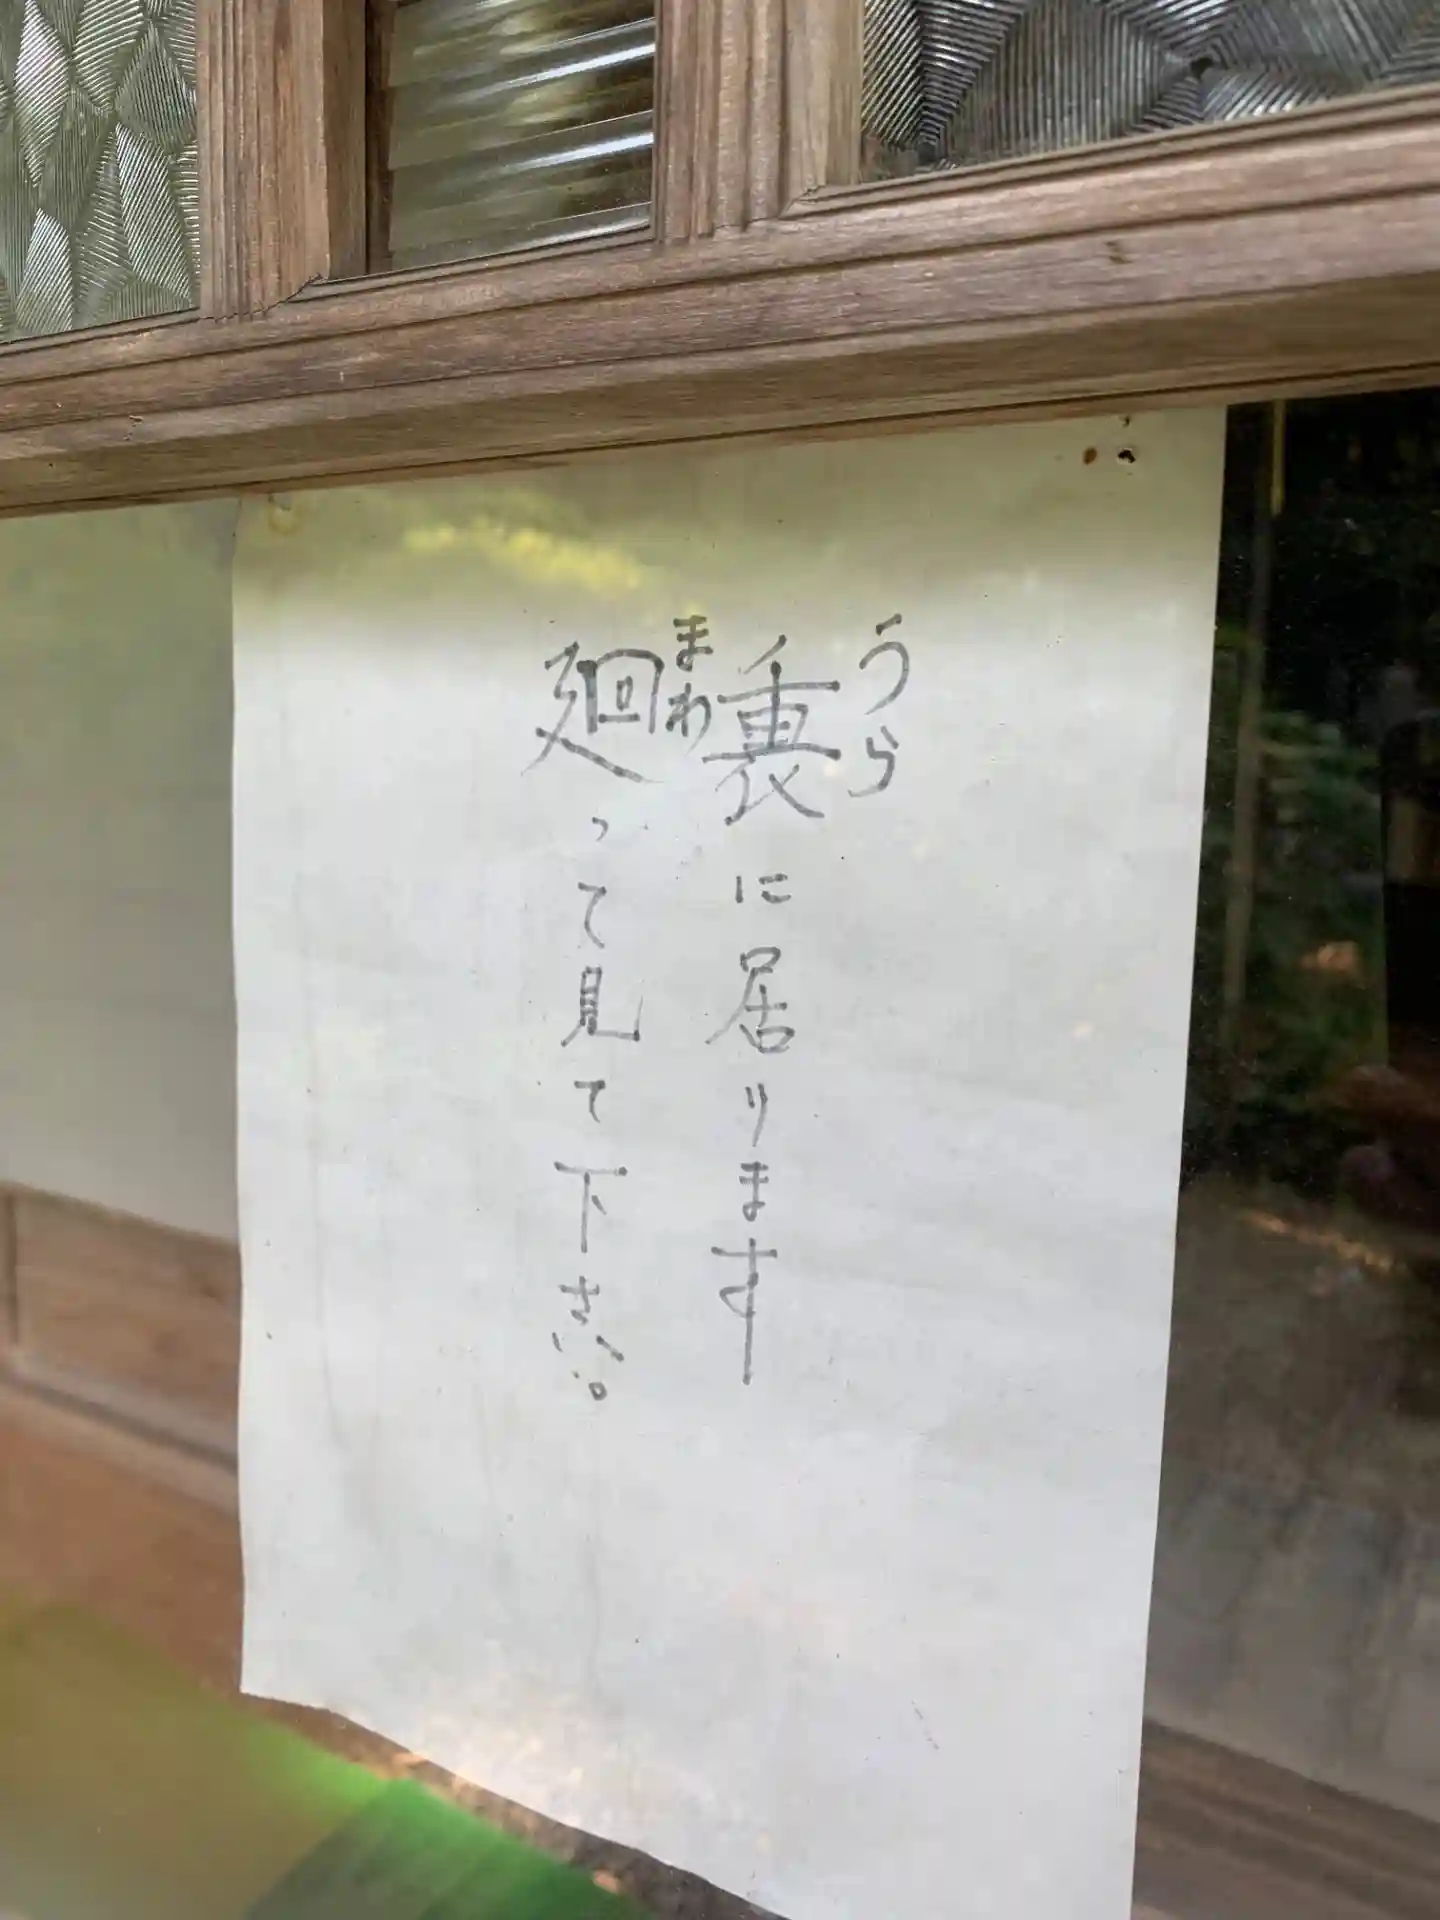 裏に居ります
うら
廻って見て下さい。
まわ